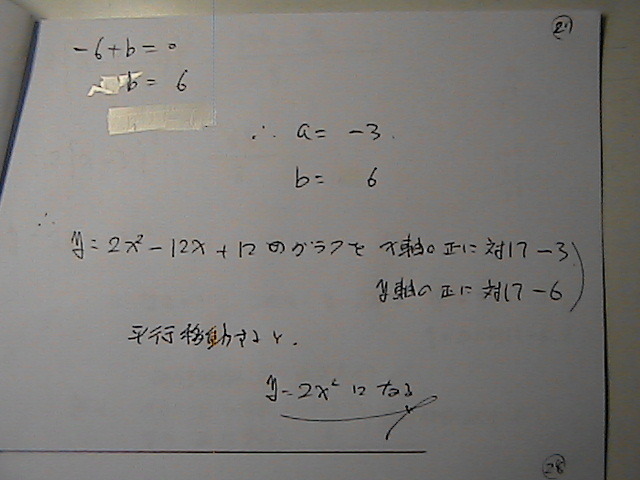 27
-6+b=0
b= 6
∴ a= -3.
b= 6
∴
y=2x²-12x+12のグラフを x軸の正に対して-3
y軸の正に対して-6
平行移動すると.
y=2x²になる
28